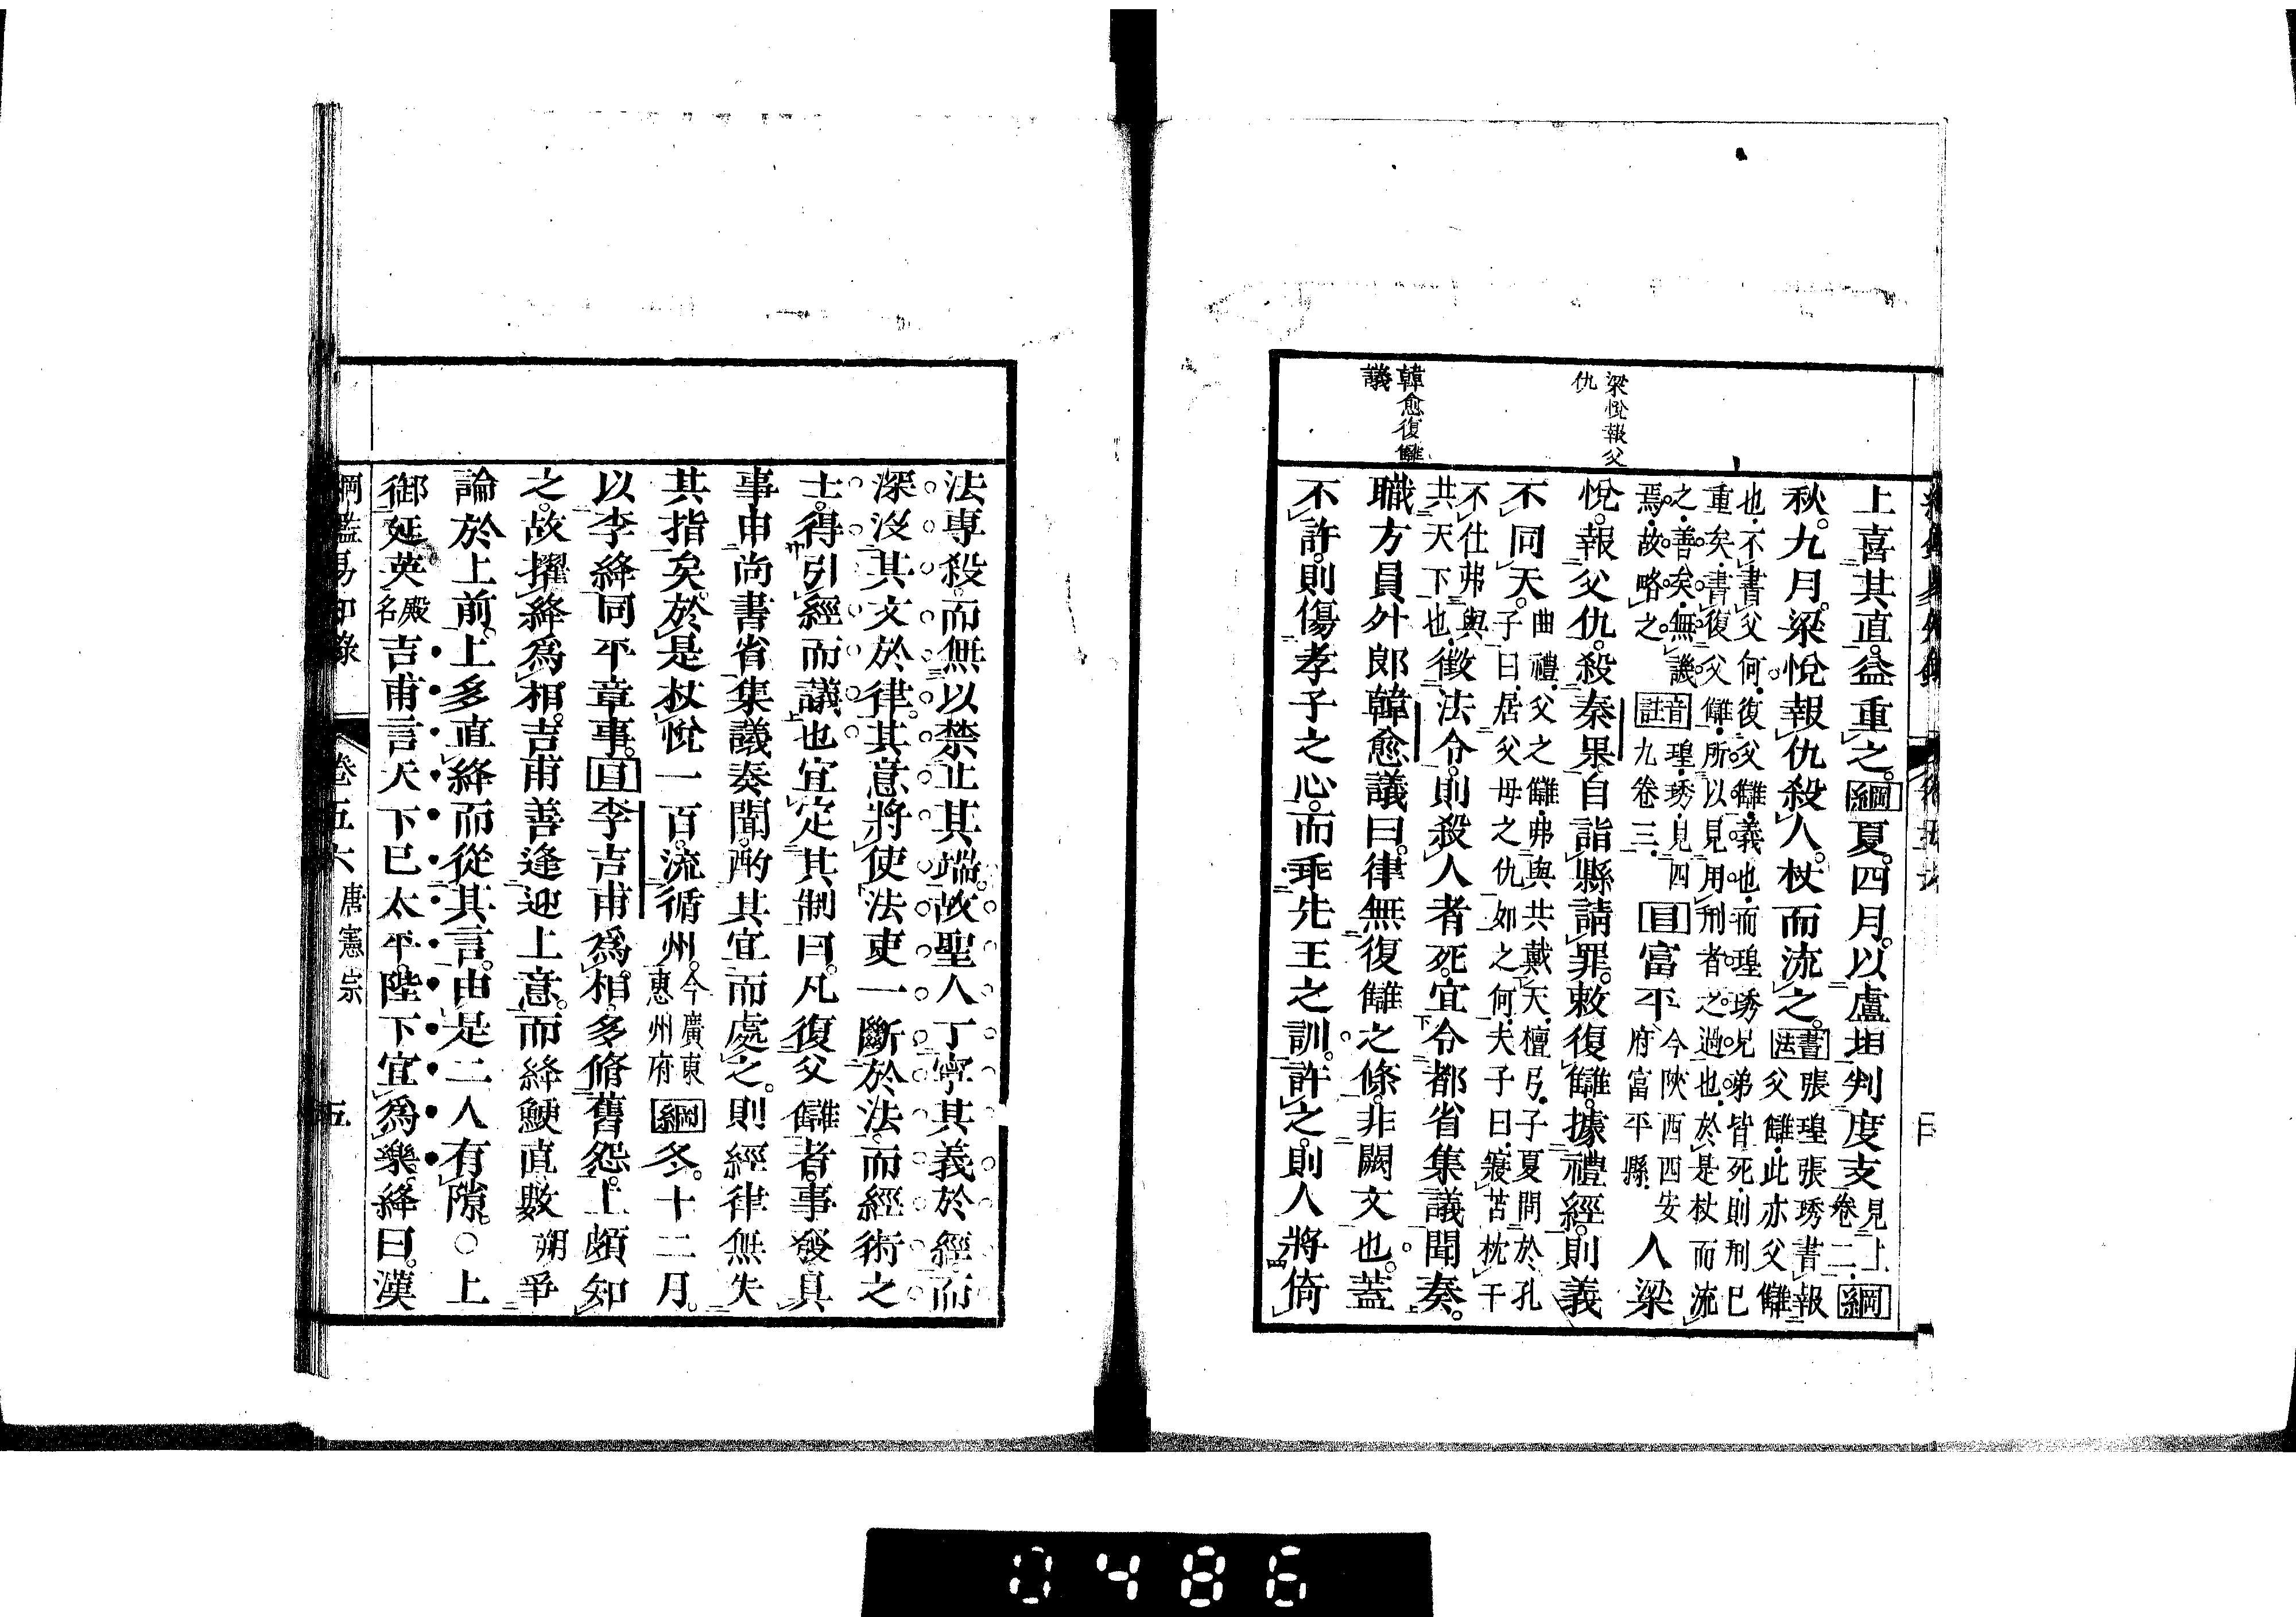 梁悅報父
仇
韓愈復讎
議
上喜其直益重之綱夏四月以盧坦判度支見上卷二綱
秋九月梁悅報仇殺人杖而流之書法張瑝張琇書報父讎此亦父讎
也不書父何復父讎義也而瑝琇兄弟皆死則刑已
重矣書復父讎所以見用刑者之過也於是杖而流
之善矣無譏焉故略之音註瑝琇見四九卷三目富平今陝西西安府富平縣人梁
悅報父仇殺秦果自詣縣請罪敕復讎據禮經則義
不同天曲禮父之讎弗與共戴天檀弓子夏問於孔子曰居父母之仇如之何夫子曰寢苫枕干
不仕弗與共天下也徵法令則殺人者死宜令都省集議聞奏
職方員外郎韓愈議曰律無復讎之條非闕文也蓋
不許則傷孝子之心而乖先王之訓許之則人將倚
法專殺而無以禁止其端故聖人丁寧其義於經而
深沒其文於律其意將使法吏一斷於法而經術之
士得引經而議也宜定其制曰凡復父讎者事發具
事申尚書省集議奏聞酌其宜而處之則經律無失
其指矣於是杖悅一百流循州今廣東惠州府綱冬十二月
以李絳同平章事目李吉甫為相多修舊怨上頗知
之故擢絳為相吉甫善逢迎上意而絳鯁直數朔爭
論於上前上多直絳而從其言由是二人有隙○上
御延英殿名吉甫言天下已太平陛下宜為樂絳曰漢
綱鑑易知錄 卷五六 唐憲宗 五
0486